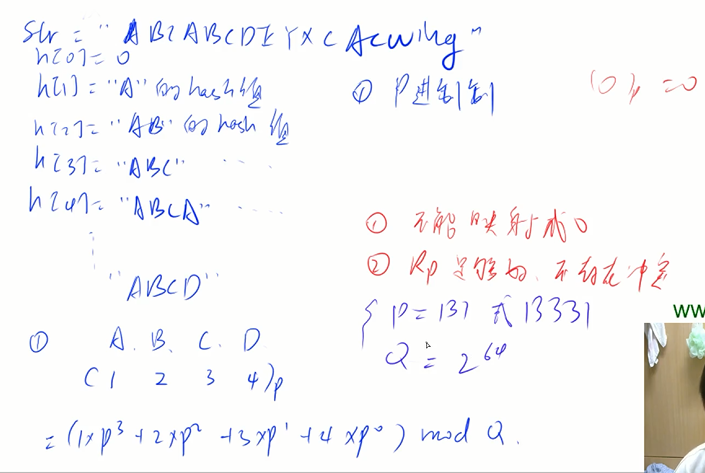 str = "ABCABCDEYXCAcwing"
h[0] = 0
h[1] = "A"的hash值
① P进制
(0)p = 0
h[2] = "AB"的hash值
h[3] = "ABC" ....
h[4] = "ABCA" ....
① 不能映射成0
② Rp足够好、不存在冲突
"ABCD"
{ P = 131 或 13331
Q = 2^64
www
① A. B. C. D
(1 2 3 4)p
= (1×p^3 + 2×p^2 + 3×p^1 + 4×p^0) mod Q.